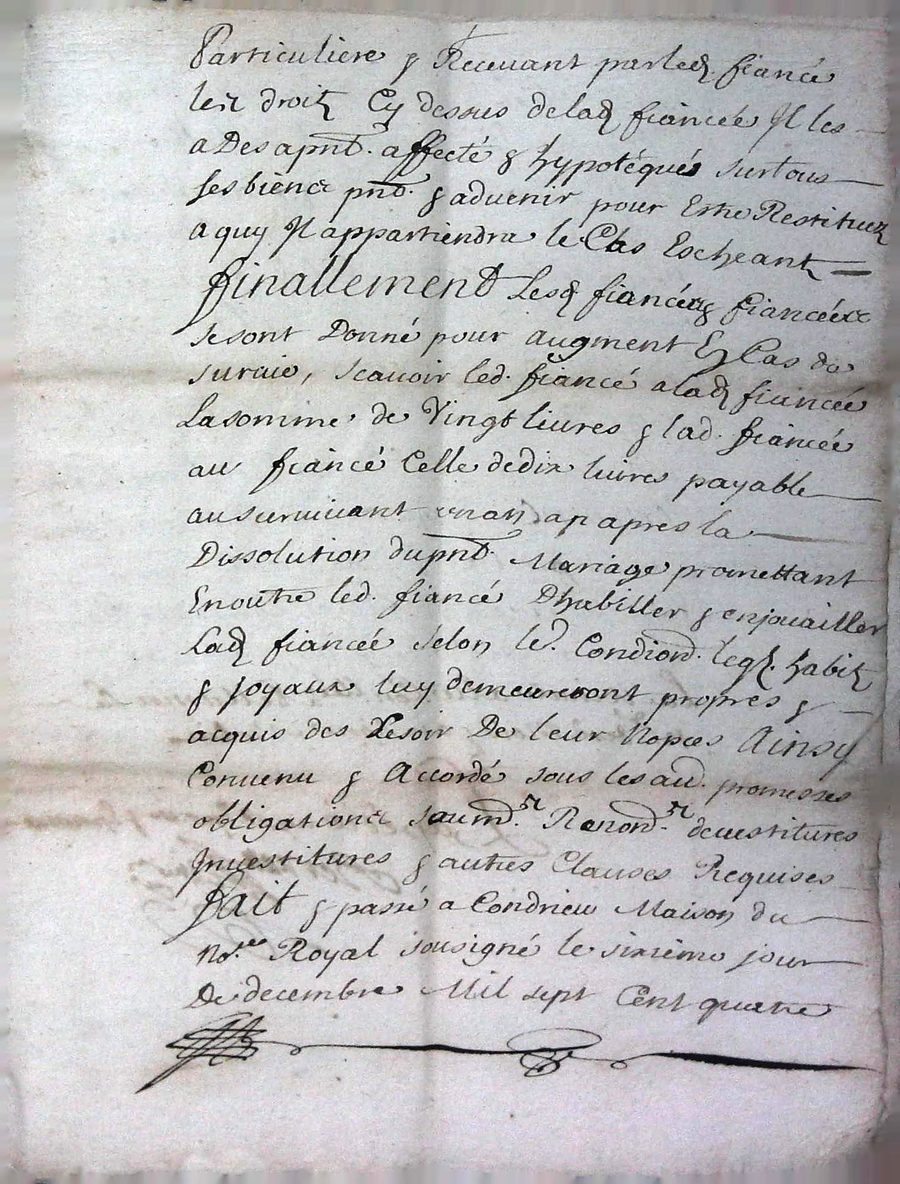 Particuliere & Recevant par led fiancé
lesd droitz Cy dessus delad fiancée Il les
a Des apnt. affecté & hypotéqués sur tous
ses biens pnt. & advenir pour Estre Restituez
a quy Il appartiendra le Cas Escheant
finallement Lesd fiancés & fiancée
se sont Donné pour augment En Cas de
survie, scavoir led. fiancé a lad fiancée
La somme de Vingt livres & lad. fiancée
au fiancé Celle de dix livres payable
au survivant un an apres la
Dissolution du pnt. Mariage promettant
En outre led. fiancé Dhabiller & enjouailler
Lad fiancée selon le. Condiond. lesq. habitz
& joyaux luy demeureront propres &
acquis des Lesoir De leur Nopces Ainsy
Convenu & Accordé sous les aud. promesses
obligations soumd.ns Renond.ns devestitures
Investitures & autres Clauses Requises
fait & passé a Condrieu Maison du
No.re Royal sousigné le sixieme jour
De decembre Mil sept Cent quatre